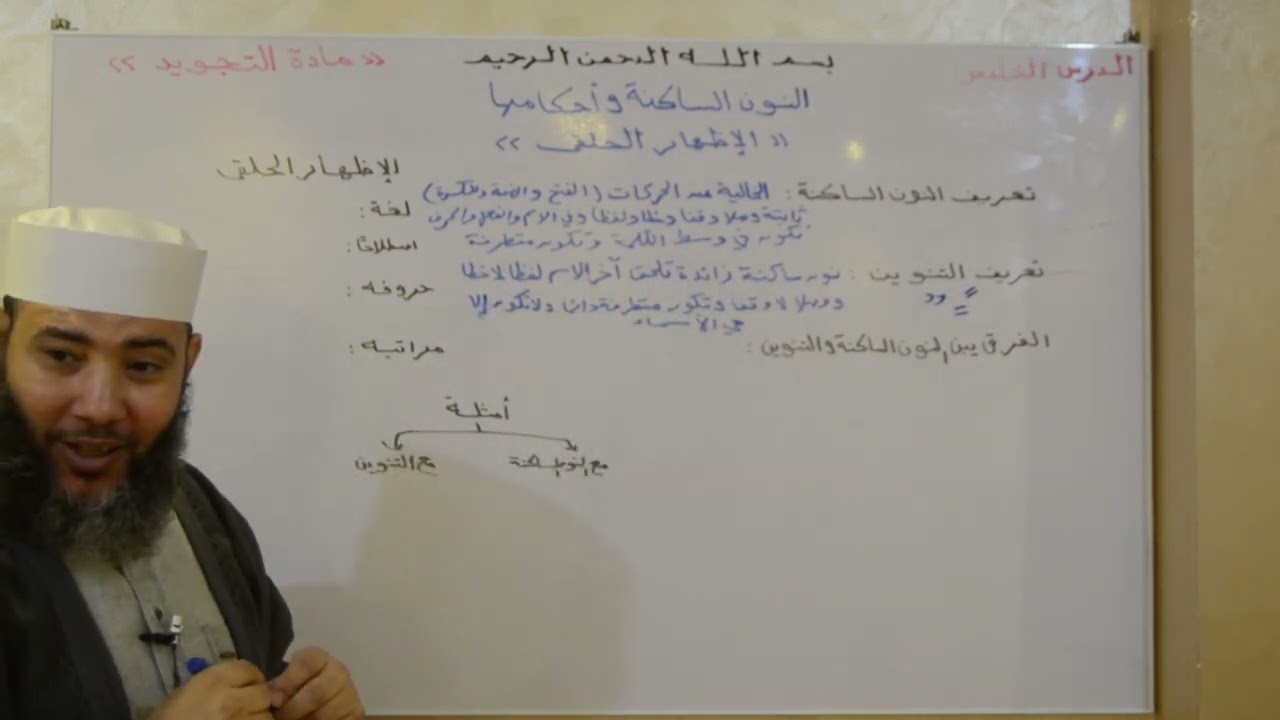 الدرس الخامس:
بسم الله الرحمن الرحيم
« مادة التجويد »
النون الساكنة وأحكامها
« الإظهار الحلقى »
تعريف النون الساكنة: الخالية من الحركات (الفتح والضمة والكسرة)
ثابتة وصلا وقفا وخطا ولفظا وفي الاسم والفعل والحرف
تكون في وسط الكلمة وتكون متطرفة
تعريف التنوين: نون ساكنة زائدة تلحق آخر الاسم لفظا لا خطا
ووصلا لا وقفا وتكون متطرفة دائما ولا تكون إلا
في الأسماء
الفرق بين النون الساكنة والتنوين:
الإظهار الحلقى
لغة:
اصطلاحًا:
حروفه:
مراتبه:
أمثلة
مع النون الساكنة
مع التنوين